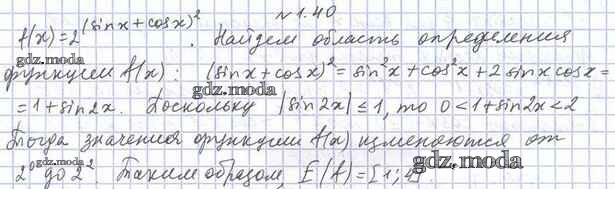 №1.40
f(x)=2^(sinx+cosx)². Найдем область определения
функции f(x): (sinx+cosx)²=sin²x+cos²x+2sinxcosx=
=1+sin2x. Поскольку |sin2x|≤1, то 0<1+sin2x<2
Тогда значения функции f(x) изменяются от
2⁰ до 2². Таким образом, E(f)=[1;4].
gdz.moda
gdz.moda
gdz.moda
gdz.moda